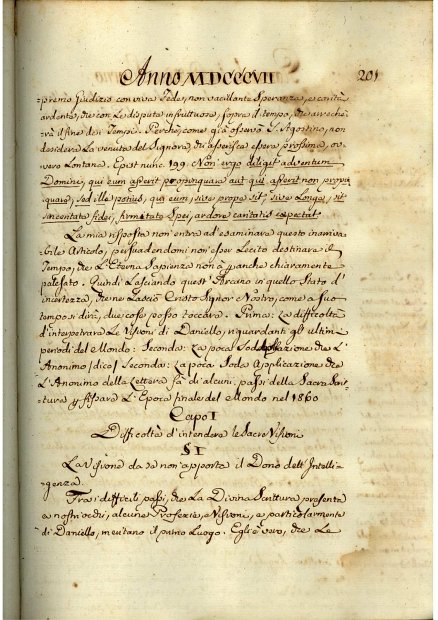 Anno MDCCCVII 201
premo Giudizio con viva Fede, non vacillante Speranza, e carità
ardente, che con le dispute infruttuose, sopra il tempo, che arreche
rà il fine dei Tempi. Perchè, come già osservò S. Agostino, non
desidera la venuta del Signore, chi asserisce essere prossima, ov
vero Lontana. Epist nunc 199. Non ergo diligit adventum
Domini, qui eum asserit propinquare aut qui asserit non propin
quare, sed ille potius, qui eum, sive prope sit, sive Longe,
sinceritate fidei, firmitate Spei, ardore caritatis expectat
La mia risposta non entra ad esaminare questo inarriva
bile Articolo, persuadendomi non esser Lecito destinare il
Tempo, che L'Eterna Sapienza non à neanche chiaramente
palesato. Quindi Lasciando quest'Arcano in quello Stato d'
incertezza, che ne Lasciò Cristo Signor Nostro, come a suo
tempo si dirà, due cose posso toccare. Prima: La difficoltà
d'interpetrare Le Visioni di Daniello, riguardanti gli ultimi
periodi del Mondo: Seconda: La poca Soda che L'
Anonimo [dico] Seconda: La poca Soda Applicazione che
L'Anonimo della Lettera fà di alcuni passi della Sacra Scrit
tura per fissare L'Epoca finale del Mondo nel 1860
Capo I
Difficoltà d'intendere le Sacre Visioni
§ I
La Visione da se non apporta il Dono dell'Intelli-
genza.
Tra i difficili passi, che La Divina Scrittura presenta
a nostri occhi, alcune Profezie, e Visioni, e particolarmente
di Daniello, meritano il primo Luogo: Egli è vero, che Le